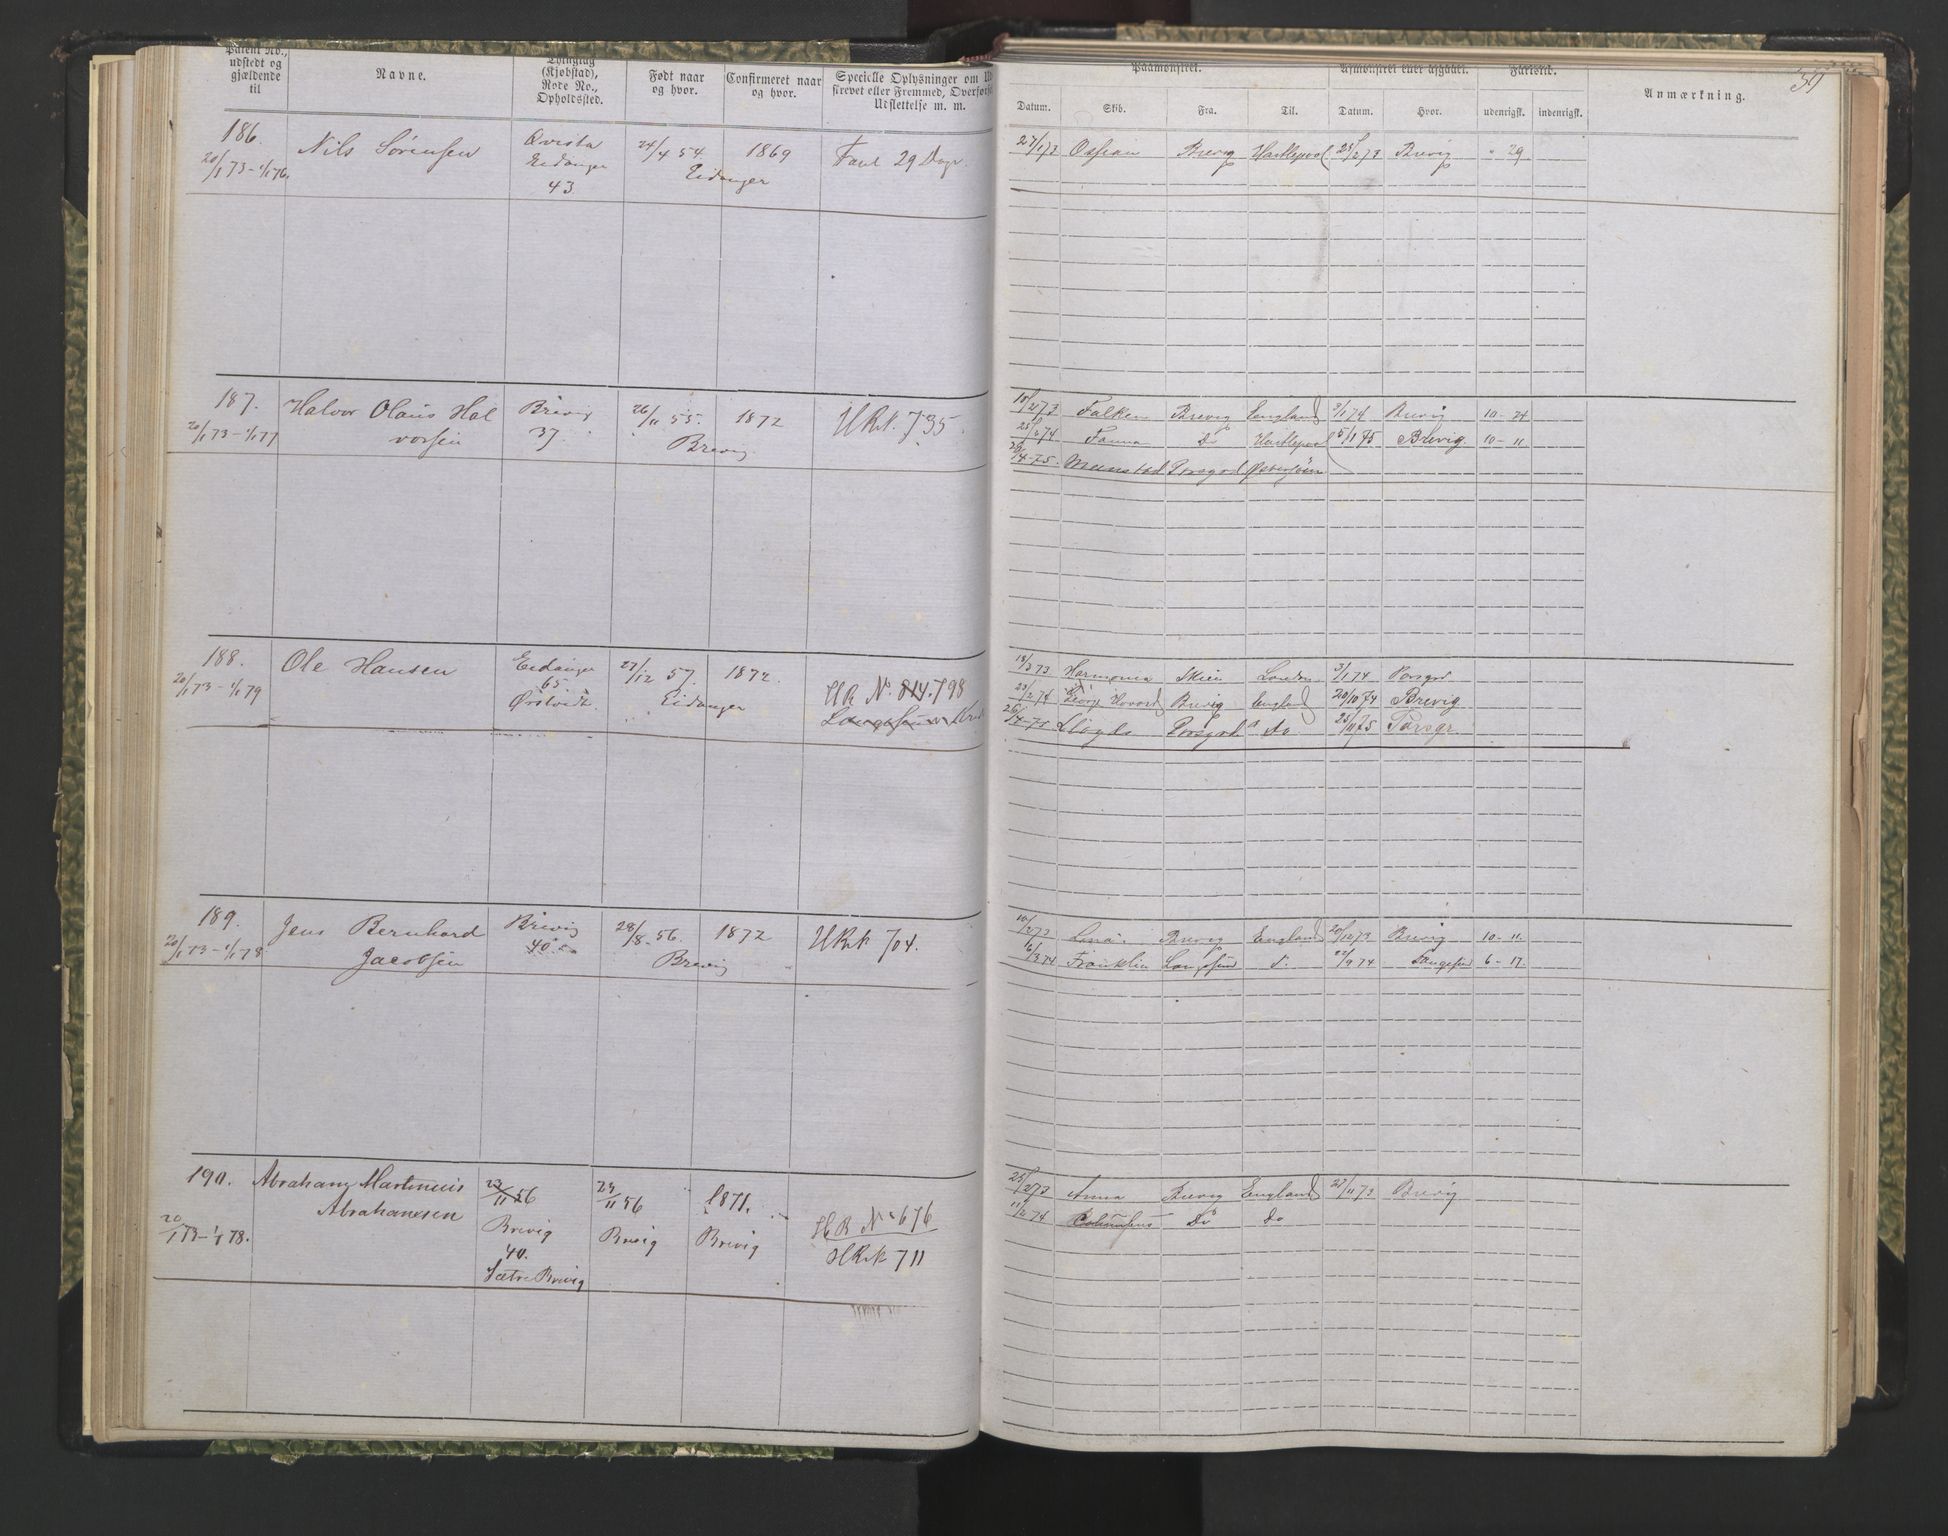 Patent No., udstedt og gjældende til
Navne.
Thinglag (Kjøbstad), Rode No., Opholdssted.
Født naar og hvor.
Confirmeret naar og hvor.
Specielle Oplysninger om Ud
skrevet eller Fremmed, Overførse
Udslettelse m. m.
Paamønstret.
Afmønstret eller afgaaet.
Fartstid.
Anmærkning.
59
Datum. Skib. Fra. Til. Datum. Hvor. udenrigsk. indenrigsk.
186. Nils Sørensen Eidanger 24/4 54 1869 Faret 29 Dage
20/1 73 - 1/1 76. 43 Eidanger
27/1 73 Ossian Brevig Hartlepool 25/2 73 Brevig " 29
187. Halvor Olaus Hal Brevig 26/11 55. 1872 HRk. 735.
20/1 73 - 1/1 77 vorsen 37. Brevig
18/2 73 Falken Brevig England 3/1 74 Brevig 10 - 24
25/2 74 Fanna Do Hartlepool 5/11 75 Brevig 10 - 11
26/4 - 75. Porsgrd Østersøen
188. Ole Hansen Eidanger 27/12 57. 1872.
20/1 73 - 1/1 79 65. Ørstvidt. Eidanger HR No. 814. 798
18/3 73 Harmonia Skien London 3/1 74 Porsgrd
25/2 74 Brevig England 20/10 74 Brevig
26/4 - 75 Lloyds Porsgrd Do 25/11 75 Porsgr.
189. Jens Bernhard Brevig 28/8 - 56. 1872 HRk 704.
20/1 73 - 1/1 78 Jacobsen 40 Brevig
10/2 73 Lina Brevig England 20/12 73 Brevig 10 - 11.
16/3 74 Franklin Langesund d. 22/9 74 Langesund 6 - 17.
190. Abraham Martinius 23/11 56 23/11 56 1871.
Abrahamsen Brevig Brevig Brevig HR No 676
20/1 73 - 1/1 78. 40. HRk 711
Sætre Brevig
25/2 73 Anna Brevig England 27/11 73 Brevig
11/2 74 Columbus Do do